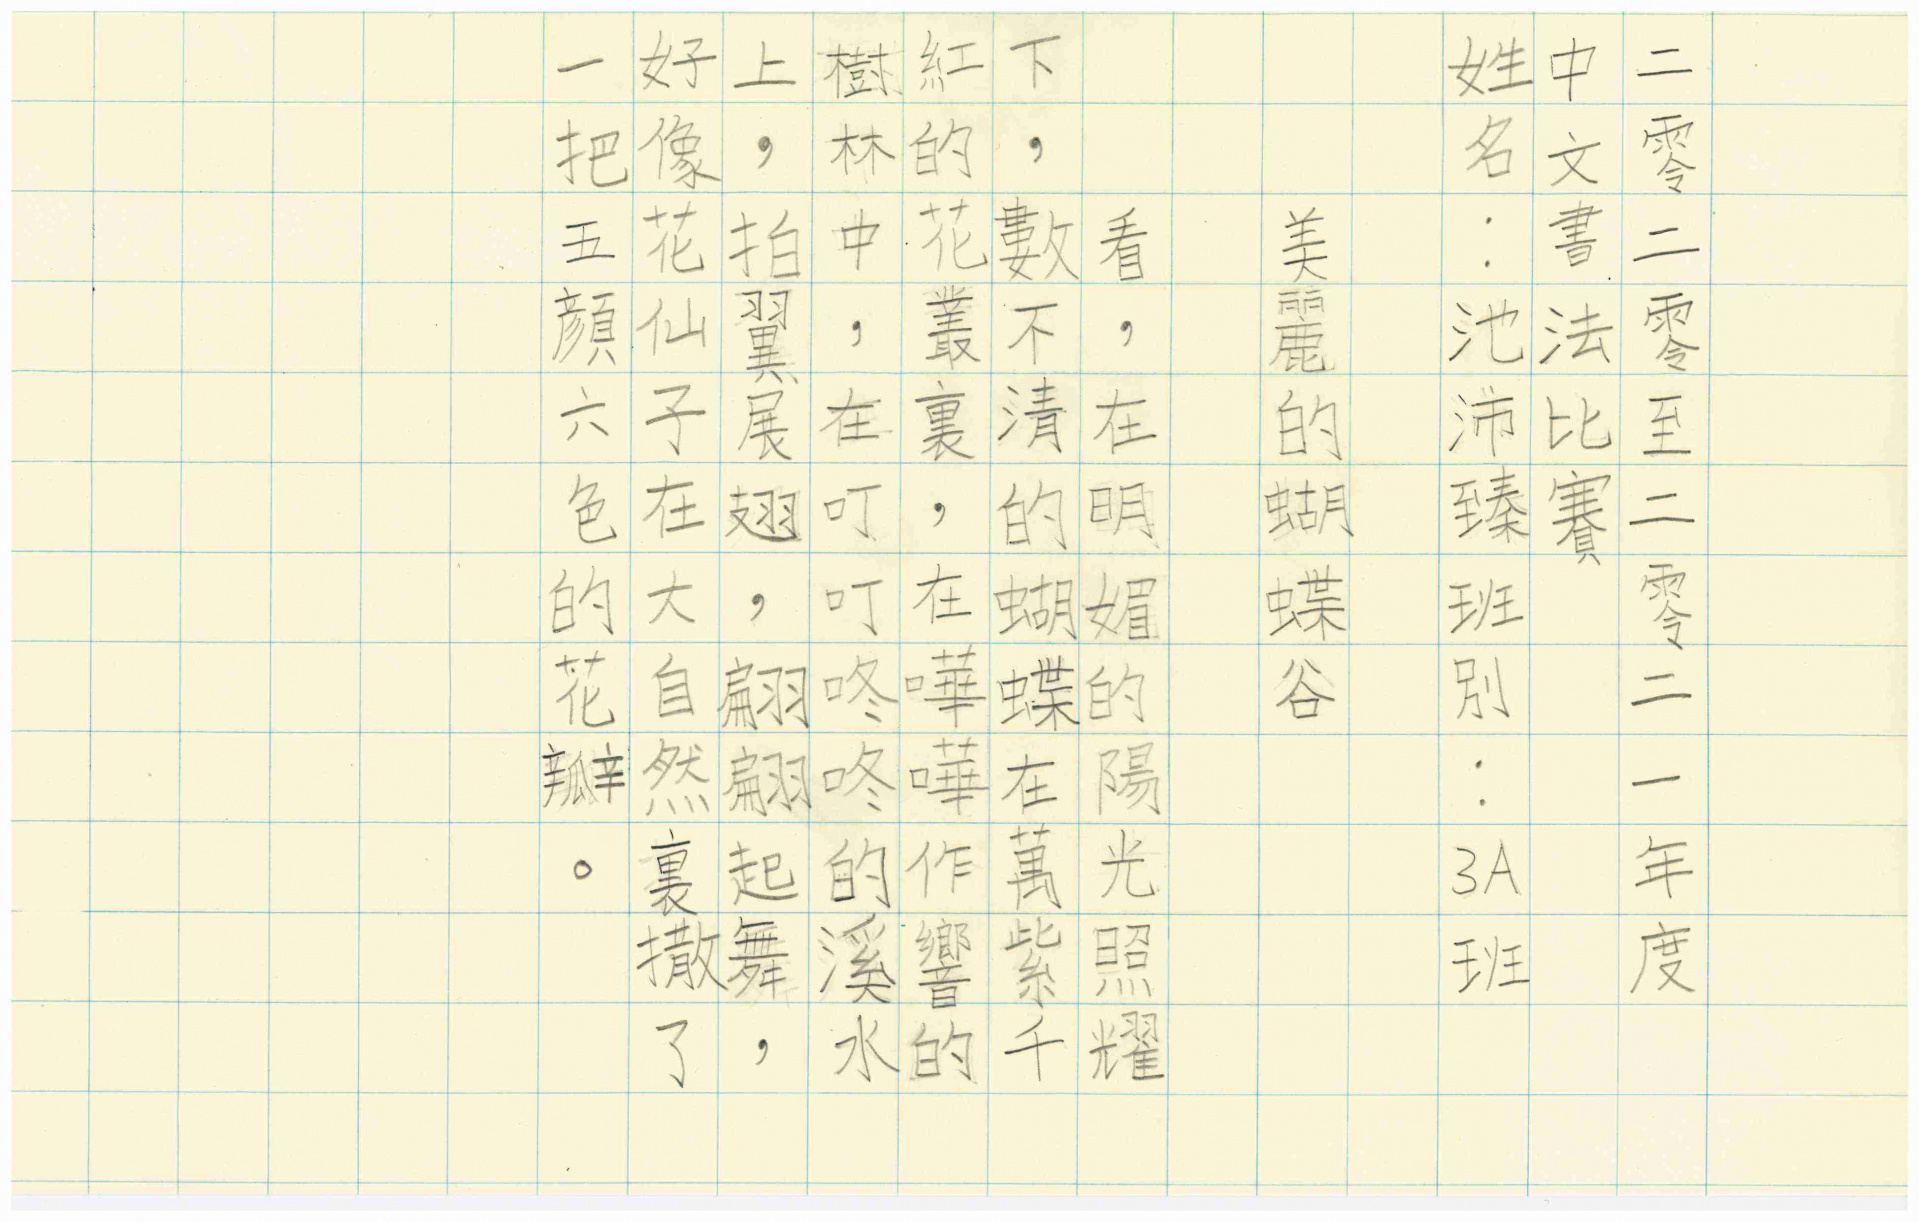 二零二零至二零二一年度
中文書法比賽
姓名：池沛臻班別：3A班
美麗的蝴蝶谷
看，在明媚的陽光照耀
下，數不清的蝴蝶在萬紫千
紅的花叢裏，在嘩嘩作響的
樹林中，在叮叮咚咚的溪水
上，拍翼展翅，翩翩起舞，
好像花仙子在大自然裏撒了
一把五顏六色的花瓣。